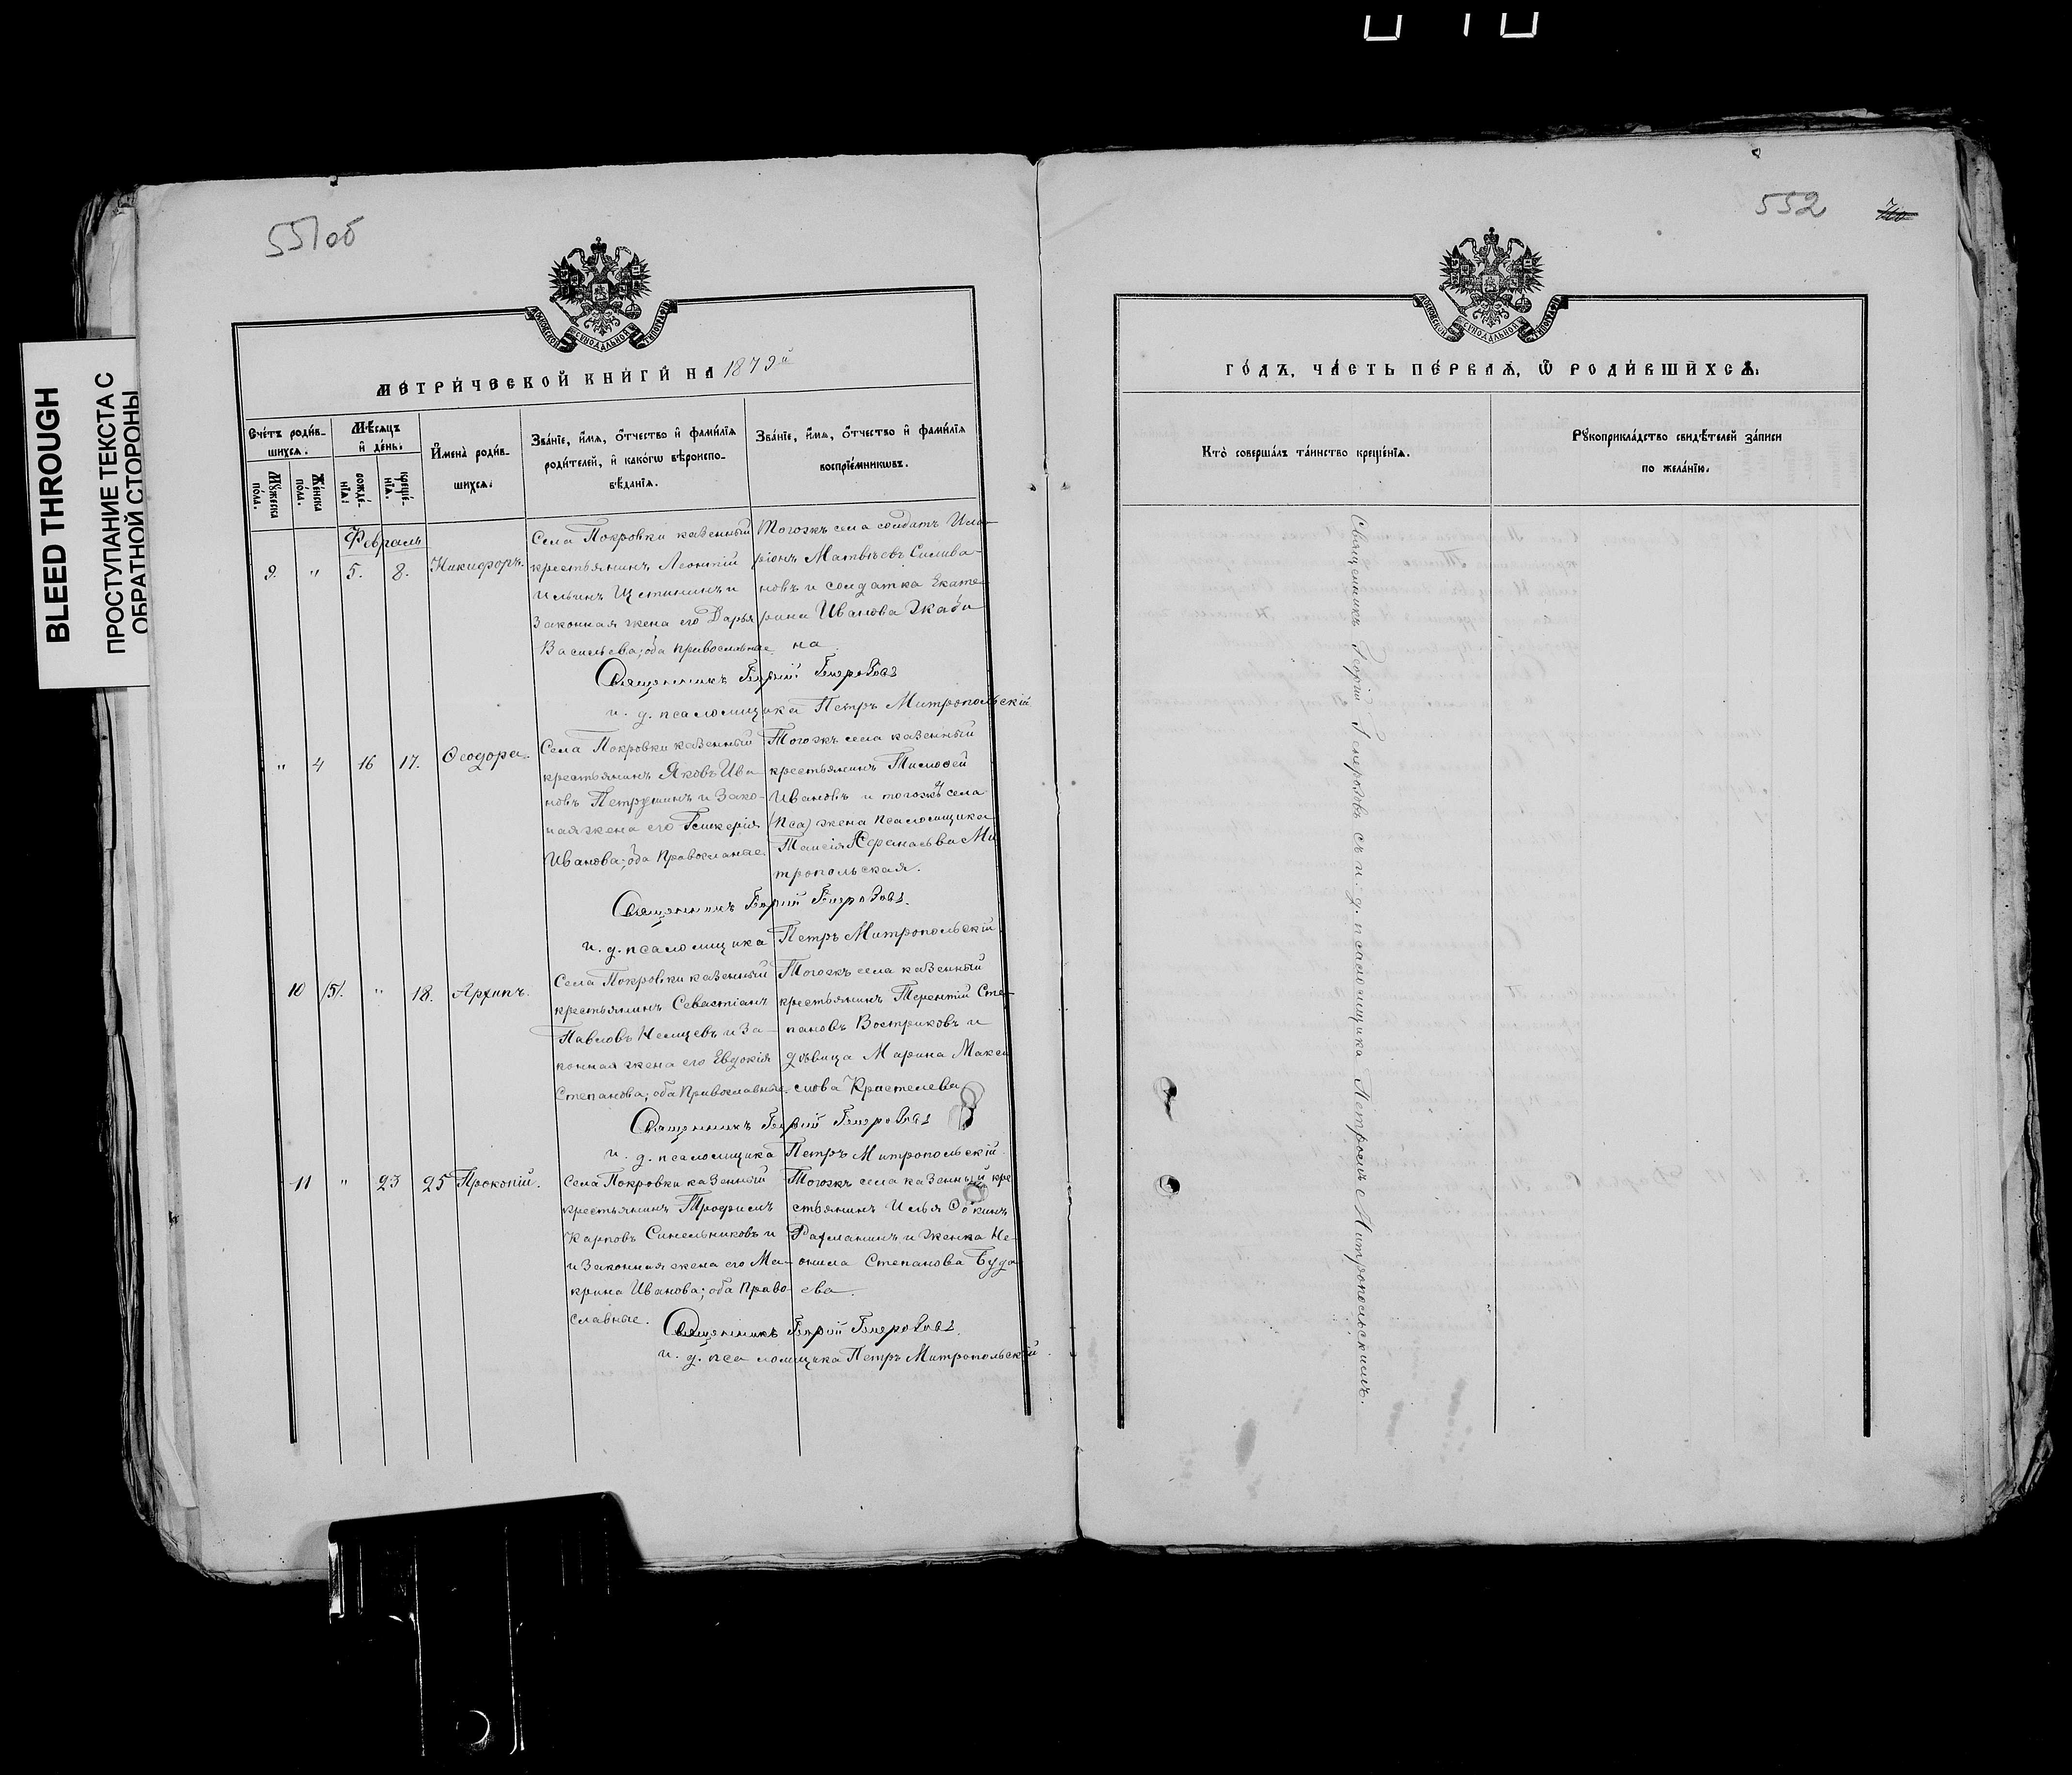 BLEED THROUGH
ПРОСТУПАНИЕ ТЕКСТА С
ОБРАТНОЙ СТОРОНЫ
551об
МОСКОВСКОЙ СѴНОДАЛЬНОЙ ТИПОГРАФІИ
МЕТРИ́ЧЕСКОЙ КНИ́ГИ НА 1879й
Сче́тъ роди́в-
шихсѧ.
Мѣ́сѧцъ
и҆ де́нь.
Мꙋ́жеска
по́ла.
Же́нска
по́ла.
рожде́-
нїѧ.
креще́-
нїѧ.
И҆мена̀ роди́в-
шихсѧ.
Зва́нїе, и҆́мѧ, ѻ҆́тчество и҆ фами́лїѧ
роди́телей, и҆ како́гѡ вѣроиспо-
вѣ́данїѧ.
Зва́нїе, и҆́мѧ, ѻ҆́тчество и҆ фами́лїѧ
воспрїе́мникѡвъ.
Февраль
9. " 5. 8. Никифоръ.
Села Покровки казенный
крестьянинъ Леонтій
Ильинъ Щетининъ и
законная жена его Дарья
Васильева; оба православные
Тогожъ села солдатъ Ила-
ріонъ Матвѣевъ Силива-
новъ и солдатка Екате
рина Иванова Жаби
на
Священникъ Георгій Генерозовъ
и. д. псаломщика Петръ Митропольскій
" 4 16 17. Ѳеодора.
Села Покровки казенный
крестьянинъ Яковъ Ива
новъ Петрушинъ и зако-
ная жена его Гликерія
Иванова; оба Православные.
Тогожъ села казенный
крестьянинъ Тимоѳей
Ивановъ и тогожъ села
(Пса) жена Псаломщика
Таисія Афанасьева Ми
тропольская.
Священникъ Георгій Генерозовъ.
и. д. псаломщика Петръ Митропольскій
10 /5/. " 18. Архипъ.
Села Покровки казенный
крестьянинъ Севастіанъ
Павловъ Немцевъ и за-
конная жена его Евдокія
Степанова; оба Православные.
Тогожъ села казенный
крестьянинъ Терентій Сте-
пановъ Востриковъ и
дѣвица Марина Макси
мова
Священникъ Георгій Генерозовъ
и. д. псаломщика Петръ Митропольскій.
11 " 23 25 Прокопій.
Села Покровки казенный
крестьянинъ Трофимъ
Карповъ Синельниковъ и
и законная жена его Ма-
крина Иванова; оба Право
славные.
Тогожъ села казенный кре
стьянинъ Илья
и женка Не-
онила Степанова Буда
ева.
Священникъ Георгій Генерозовъ.
и. д. псаломщика Петръ Митропольскій.
552
МОСКОВСКОЙ СѴНОДАЛЬНОЙ ТИПОГРАФІИ
ГО́ДЪ, ЧА́СТЬ ПЕ́РВАѦ, Ѽ РОДИ́ВШИХСѦ.
Кто̀ соверша́лъ та́инство креще́нїѧ.
Рꙋкоприкла́дство свидѣ́телей за́писи
по жела́нїю.
Священникъ Георгій Генерозовъ съ и. д. псаломщика Петромъ Митропольскимъ.